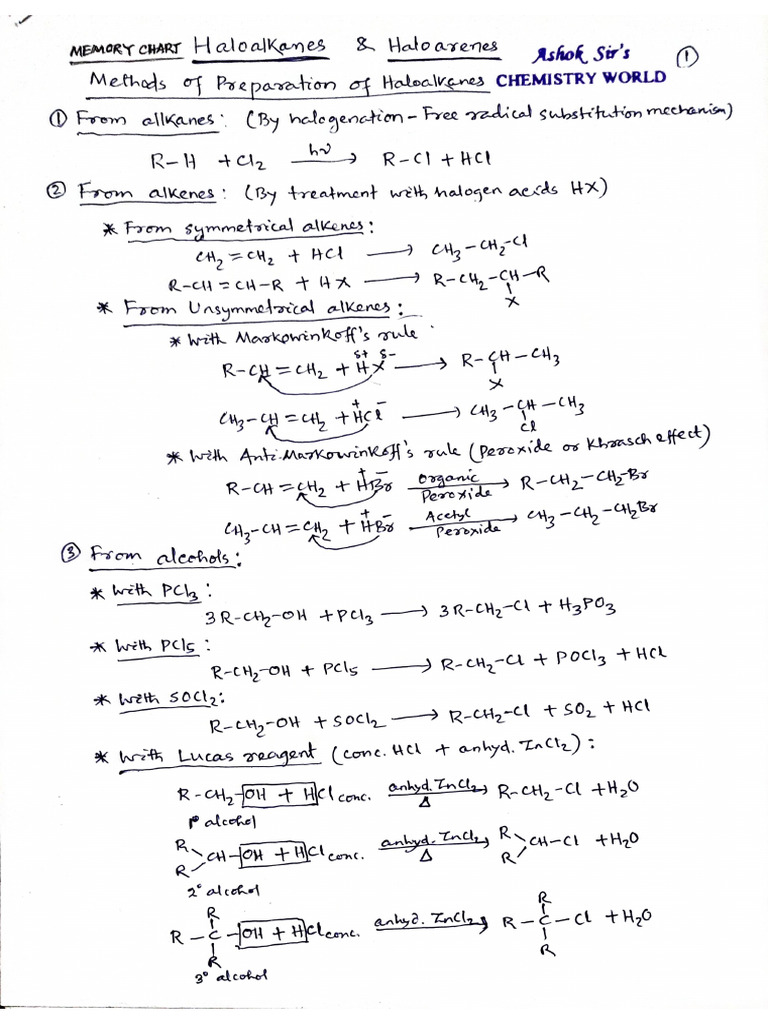 MEMORY CHART Haloalkanes & Haloarenes Ashok Sir's ①
Methods of Preparation of Haloalkanes CHEMISTRY WORLD
① From allkanes: (By halogenation - Free radical substitution mechanism)
R-H + Cl2 hν → R-Cl + HCl
② From alkenes: (By treatment with halogen acids HX)
* From symmetrical alkenes:
CH2=CH2 + HCl → CH3-CH2-Cl
R-CH=CH-R + HX → R-CH2-CH-R
X
* From Unsymmetrical alkenes:
* With Markowinkoff's rule
δ+ δ-
R-CH=CH2 + HX → R-CH-CH3
X
+ -
CH3-CH=CH2 + HCl → CH3-CH-CH3
Cl
* With Anti.Markowinkoff's rule (Peroxide or Khrasch effect)
+ -
R-CH=CH2 + HBr Organic Peroxide → R-CH2-CH2-Br
+ -
CH3-CH=CH2 + HBr Acetyl Peroxide → CH3-CH2-CH2Br
③ From alcohols:
* With PCl3:
3R-CH2-OH + PCl3 → 3R-CH2-Cl + H3PO3
* With PCl5:
R-CH2-OH + PCl5 → R-CH2-Cl + POCl3 + HCl
* With SOCl2:
R-CH2-OH + SOCl2 → R-CH2-Cl + SO2 + HCl
* With Lucas reagent (conc. HCl + anhyd. ZnCl2):
R-CH2-OH + HCl conc. anhyd. ZnCl2 Δ → R-CH2-Cl + H2O
1° alcohol
R R
CH-OH + HCl conc. anhyd. ZnCl2 Δ → CH-Cl + H2O
R R
2° alcohol
R R
R-C-OH + HCl conc. anhyd. ZnCl2 → R-C-Cl + H2O
R R
3° alcohol